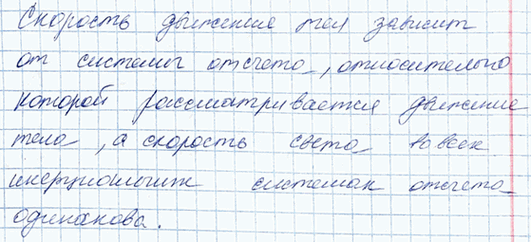 Скорость движение тел зависит
от системы отсчета, относительно
которой рассматривается движение
тела, а скорость света во всех
инерционных системах отсчета
одинакова.